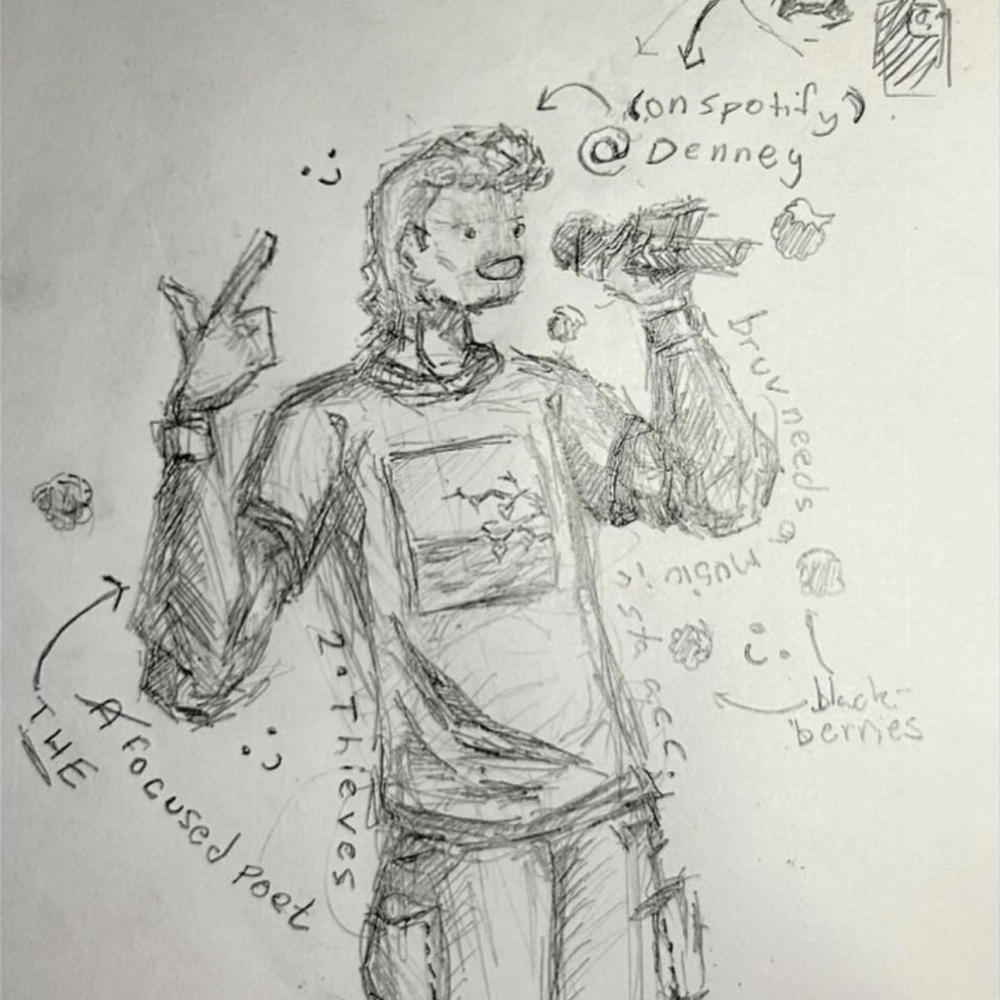 (on spotify)
@Denney
bruv needs a
2.Thieves
black-
berries
THE
A focused poet